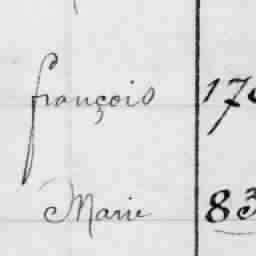 françois 170
Marie 83